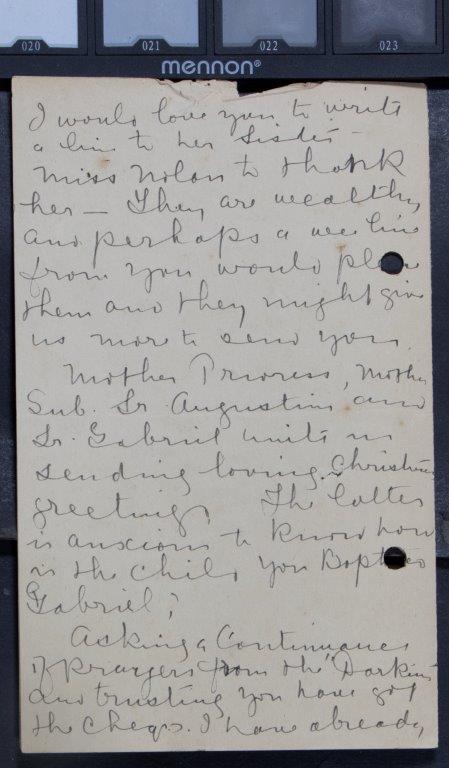 020 021 022 023
mennon®
I would love you to write
a line to her sister -
Miss Nolan to thank
her - They are wealthy
and perhaps a wee line
from you would please
them and they might give
us more to send you.
Mother Prioress, Mother
Sub. Sr Augustin and
Sr. Gabriel unite in
sending loving Christmas
greetings The latter
is anxious to know how
is the child you Baptised
Gabriel?
Asking a Continuance
of prayers from the "Darkies"
and trusting you have got
the cheqs. I have already,